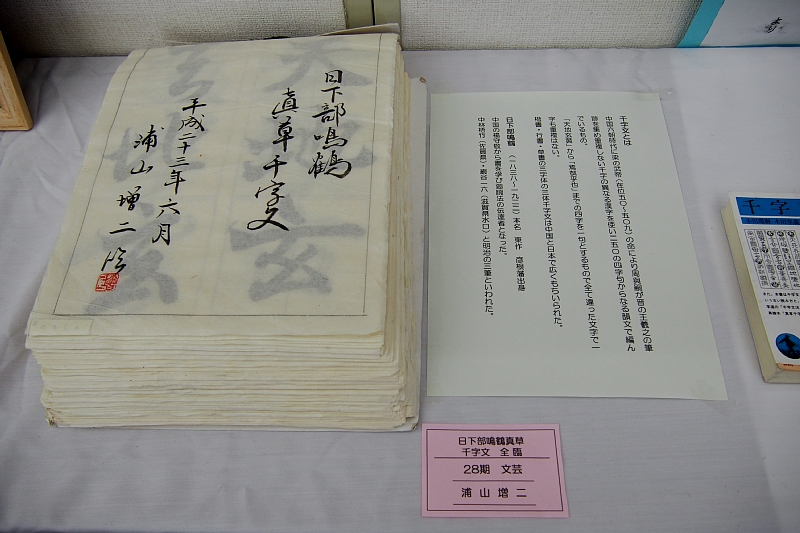 日下部鳴鶴
真草千字文
平成二十三年六月
浦山増二臨
千字文とは
中国六朝時代に梁の武帝（在位五〇二～五四九）の命により周興嗣が晋の王羲之の筆
跡を集め重複しない千字の異なる漢字を使い二五〇の四字句からなる韻文で編ん
でいるもの。
「天地玄黄」から「焉哉乎也」までの四字を一句とするもので全て違った文字で一
字も重複はない。
楷書・行書・草書の三字体の三体千字文は中国と日本で広くもちいられた。
日下部鳴鶴 （一八三八～一九二二）本名 東作 彦根藩出身
中国の楊守敬から書を学び廻腕法の伝達者となった。
中林梧竹（佐賀県）・巌谷一六（滋賀県水口）と明治の三筆といわれた。
日下部鳴鶴真草
千字文 全臨
28期 文芸
浦山増二
千字